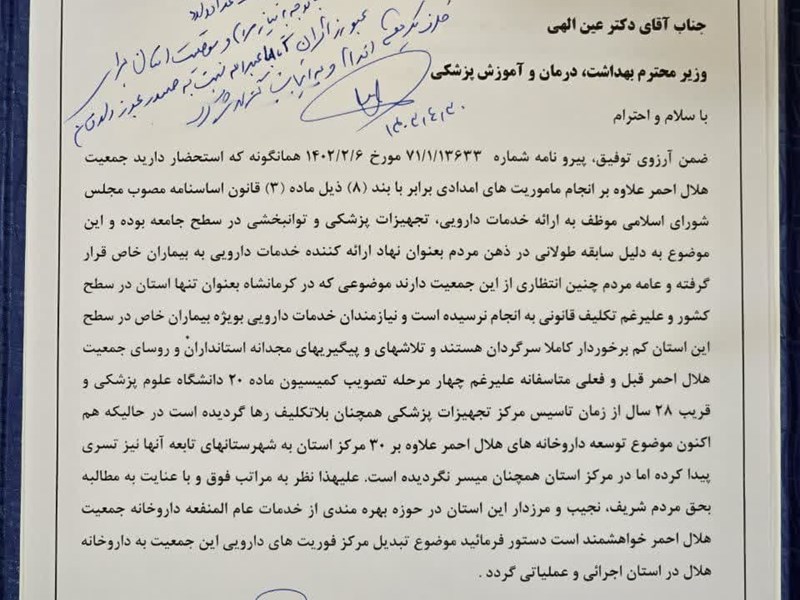 جناب آقای دکتر عین الهی
وزیر محترم بهداشت، درمان و آموزش پزشکی
با سلام و احترام
ضمن آرزوی توفیق، پیرو نامه شماره ۷۱/۱/۱۳۶۳۳ مورخ ۱۴۰۲/۲/۶ همانگونه که استحضار دارید جمعیت
هلال احمر علاوه بر انجام ماموریت های امدادی برابر با بند (۸) ذیل ماده (۳) قانون اساسنامه مصوب مجلس
شورای اسلامی موظف به ارائه خدمات دارویی، تجهیزات پزشکی و توانبخشی در سطح جامعه بوده و این
موضوع به دلیل سابقه طولانی در ذهن مردم بعنوان نهاد ارائه کننده خدمات دارویی به بیماران خاص قرار
گرفته و عامه مردم چنین انتظاری از این جمعیت دارند موضوعی که در کرمانشاه بعنوان تنها استان در سطح
کشور و علیرغم تکلیف قانونی به انجام نرسیده است و نیازمندان خدمات دارویی بویژه بیماران خاص در سطح
این استان کم برخوردار کاملا سرگردان هستند و تلاشهای و پیگیریهای مجدانه استانداران و روسای جمعیت
هلال احمر قبل و فعلی متاسفانه علیرغم چهار مرحله تصویب کمیسیون ماده ۲۰ دانشگاه علوم پزشکی و
قریب ۲۸ سال از زمان تاسیس مرکز تجهیزات پزشکی همچنان بلاتکلیف رها گردیده است در حالیکه هم
اکنون موضوع توسعه داروخانه های هلال احمر علاوه بر ۳۰ مرکز استان به شهرستانهای تابعه آنها نیز تسری
پیدا کرده اما در مرکز استان همچنان میسر نگردیده است. علیهذا نظر به مراتب فوق و با عنایت به مطالبه
بحق مردم شریف، نجیب و مرزدار این استان در حوزه بهره مندی از خدمات عام المنفعه داروخانه جمعیت
هلال احمر خواهشمند است دستور فرمائید موضوع تبدیل مرکز فوریت های دارویی این جمعیت به داروخانه
هلال در استان اجرائی و عملیاتی گردد .